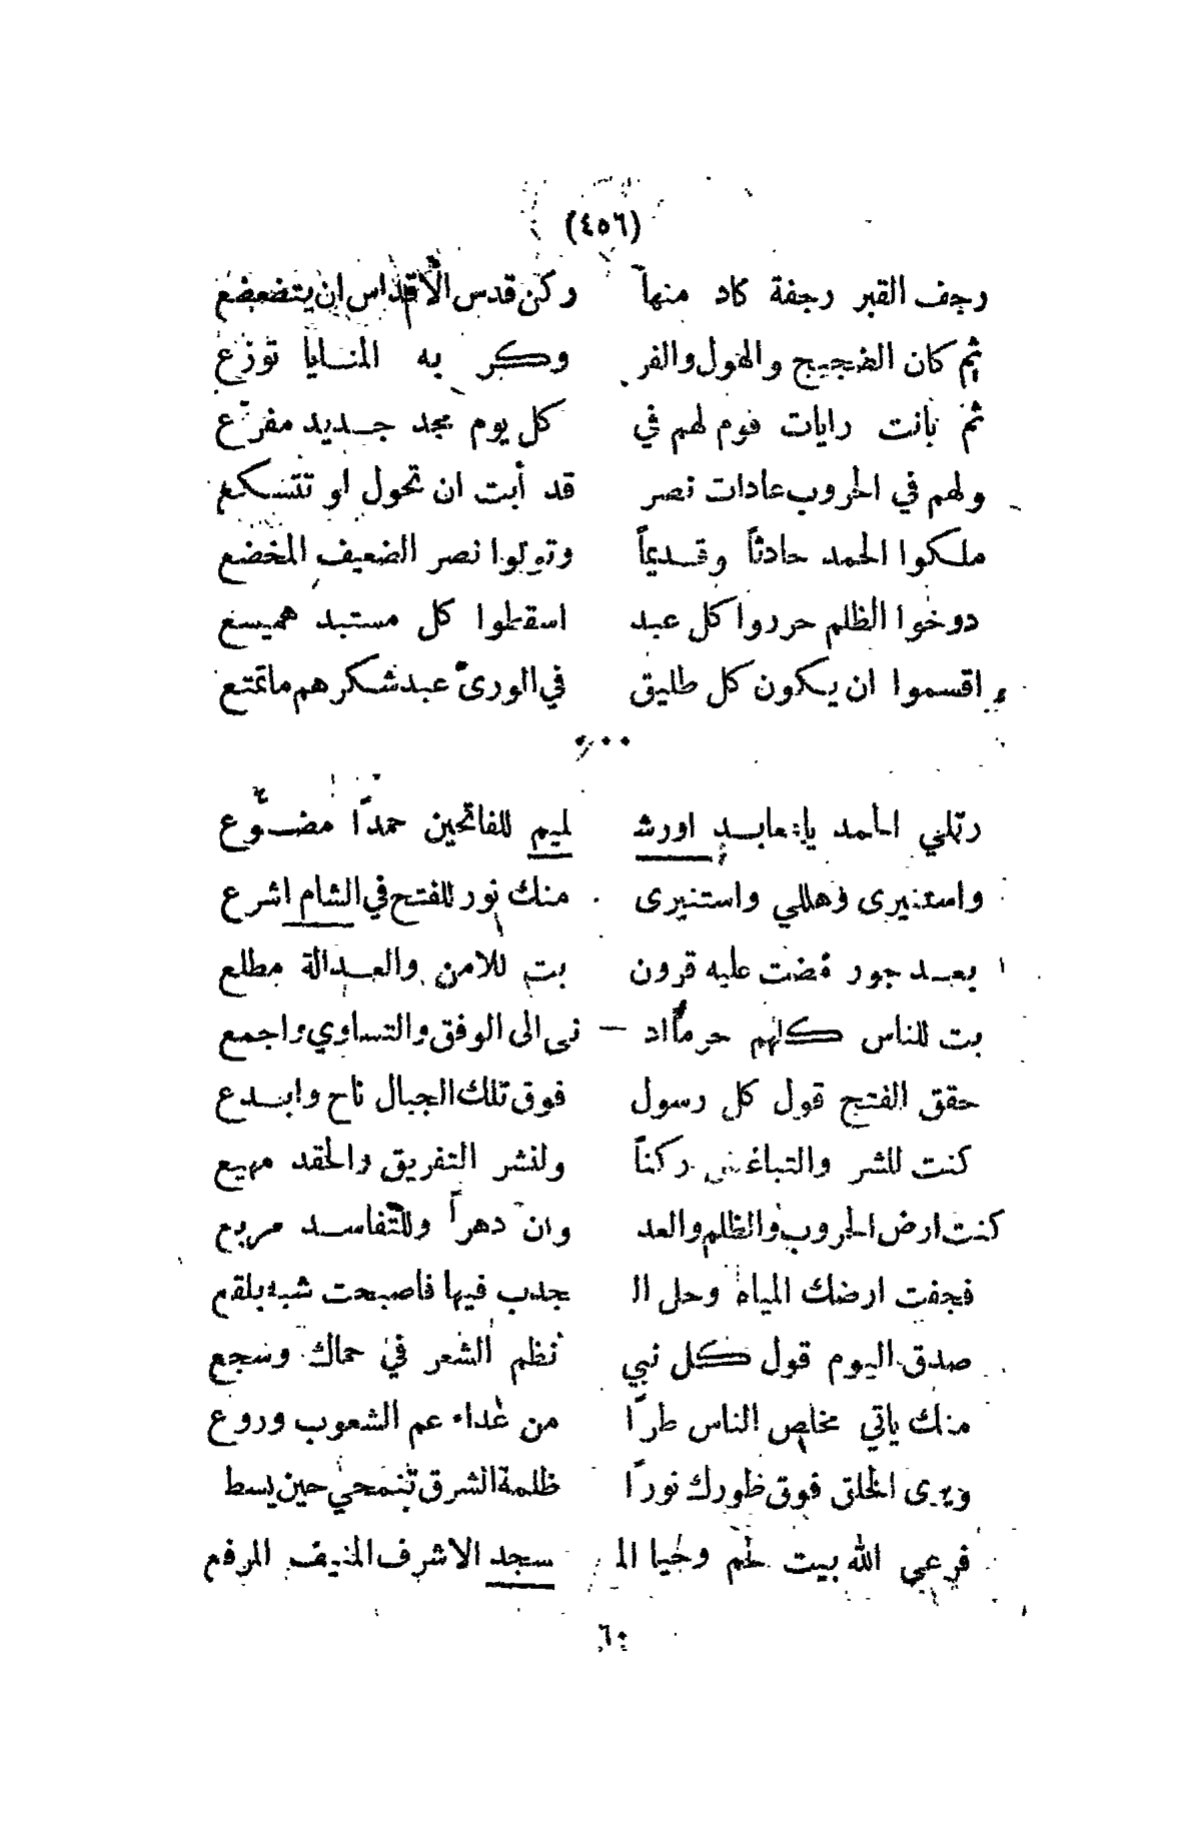 (٤٥٦)
رجف القبر رجفة كاد منها ركن قدس الأقداس ان يتضعضع
ثم كان الضجيج والهول والفر وكر به المنايا توزع
ثم بانت رايات قوم لهم في كل يوم مجد جديد مفرّع
ولهم في الحروب عادات نصر قد أبت ان تحول او تتسكع
ملكوا الحمد حادثاً وقديماً وتولوا نصر الضعيف المخضع
دوخوا الظلم حرروا كل عبد اسقطوا كل مستبد هميسع
اقسموا ان يكون كل طليق في الورى عبد شكرهم ما تمتع
رتلي الحمد يا معابد اورش ليم للفاتحين حمداً مضوّع
واستنيرى وهللي واستنيرى منك نور للفتح في الشام اشرع
بعد جور مضت عليه قرون بت للامن والعدالة مطلع
بت للناس كلهم حرماً اد — نى الى الوفق والتساوي واجمع
حقق الفتح قول كل رسول فوق تلك الجبال ناح وابدع
كنت للشر والتباغض ركناً ولنشر التفريق والحقد مهيع
كنت ارض الحروب والظلم والعد وان دهراً وللتفاسد مربع
فجفت ارضك المياه وحل ال جدب فيها فاصبحت شبه بلقع
صدق اليوم قول كل نبي نظم الشعر في حماك وسجع
منك ياتي مخلص الناس طرّا من عداء عم الشعوب وروع
ويرى الخلق فوق طورك نوراً ظلمة الشرق تنمحي حين يسط
فرعى الله بيت لحم وحيا الم سجد الاشرف المنيف المرفع